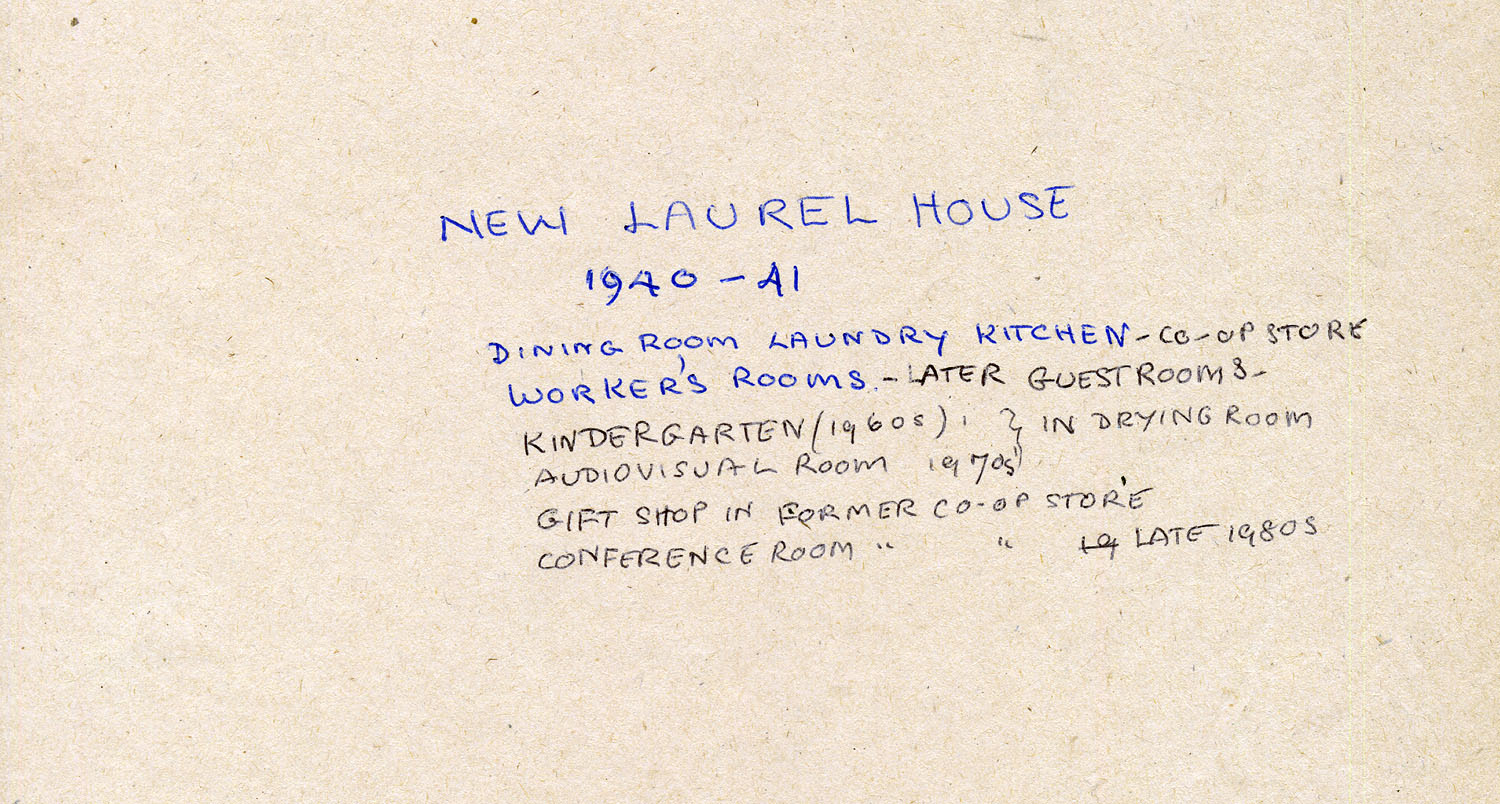 NEW LAUREL HOUSE
1940 - 41
DINING ROOM LAUNDRY KITCHEN - CO-OP STORE
WORKER'S ROOMS. - LATER GUEST ROOMS -
KINDERGARTEN (1960s). } IN DRYING ROOM
AUDIOVISUAL ROOM 1970s
GIFT SHOP IN FORMER CO-OP STORE
CONFERENCE ROOM " " 19 LATE 1980s